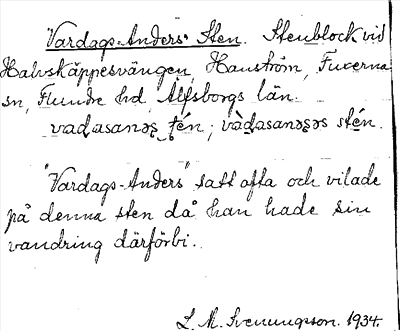 Vardags-Anders' Sten. Stenblock vid
Halvskäppesvängen, Hanström, Fuxerna
sn, Flundre hd Älfsborgs län.
vaḍasanəʂ ʈén; vàḍasanəʂəs stén.
"Vardags-Anders" satt ofta och vilade
på denna sten då han hade sin
vandring därförbi.
L. M. Svenungsson. 1934.